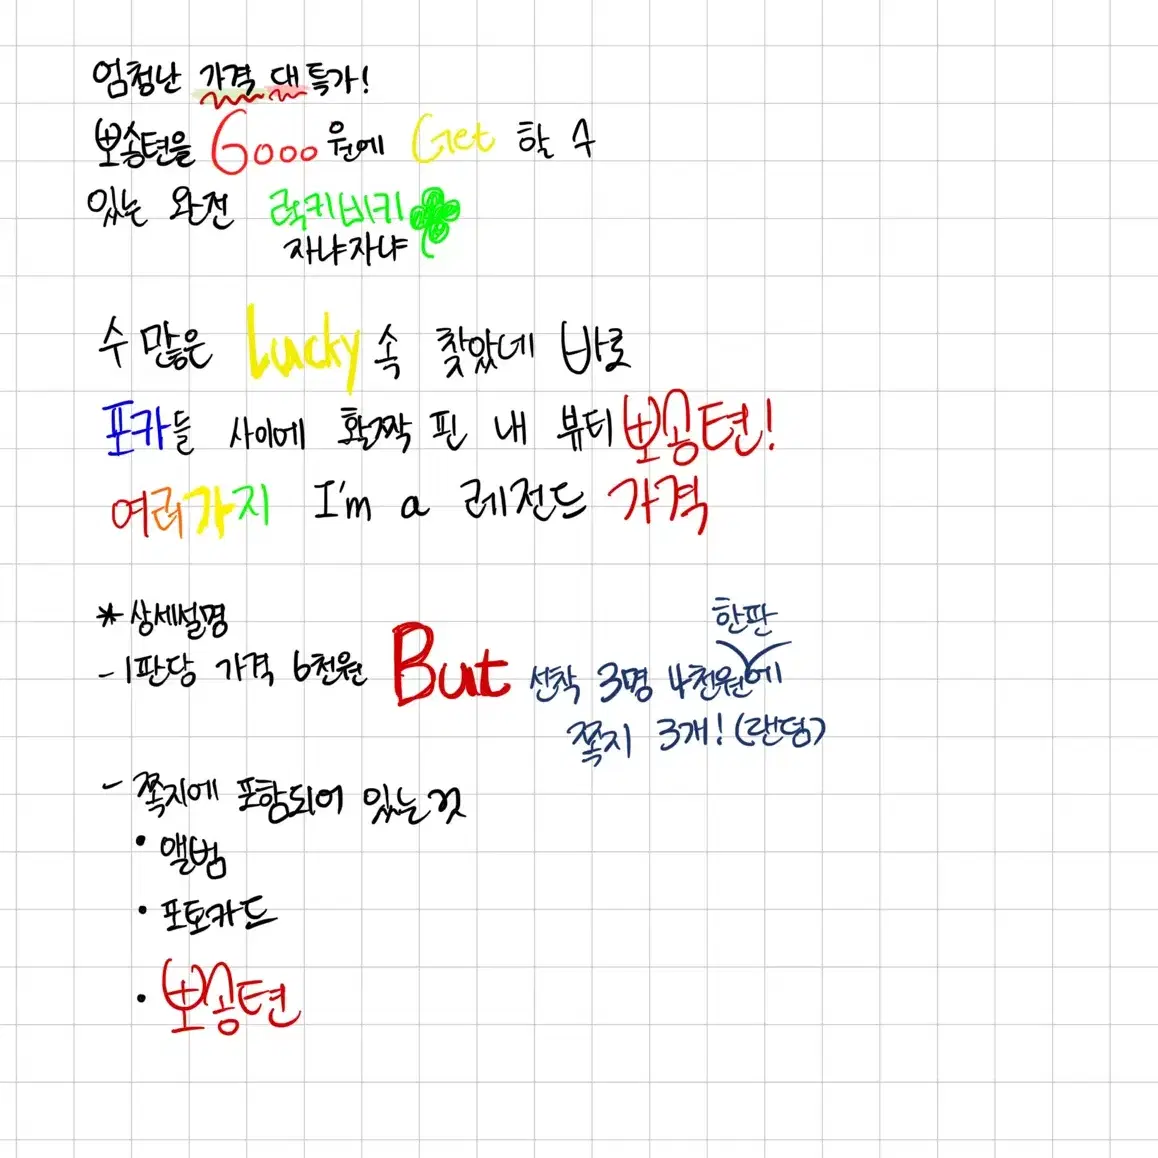 엄청난 가격 대 특가!
뽀송턴을 6000원에 Get 할 수
있는 완전 럭키비키
자냐자냐
수 많은 Lucky 속 찾았네 바로
포카들 사이에 활짝 핀 내 뷰티 뽀송턴!
여러가지 I'm a 레전드 가격
* 상세설명
- 1판당 가격 6천원 But 선착 3명 4천원에
한판
쪽지 3개! (랜덤)
- 쪽지에 포함되어 있는 것
• 앨범
• 포토카드
• 뽀송턴